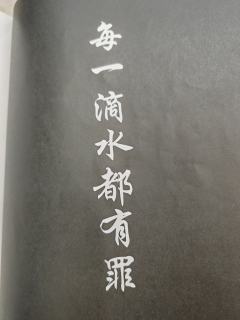 每一滴水都有罪